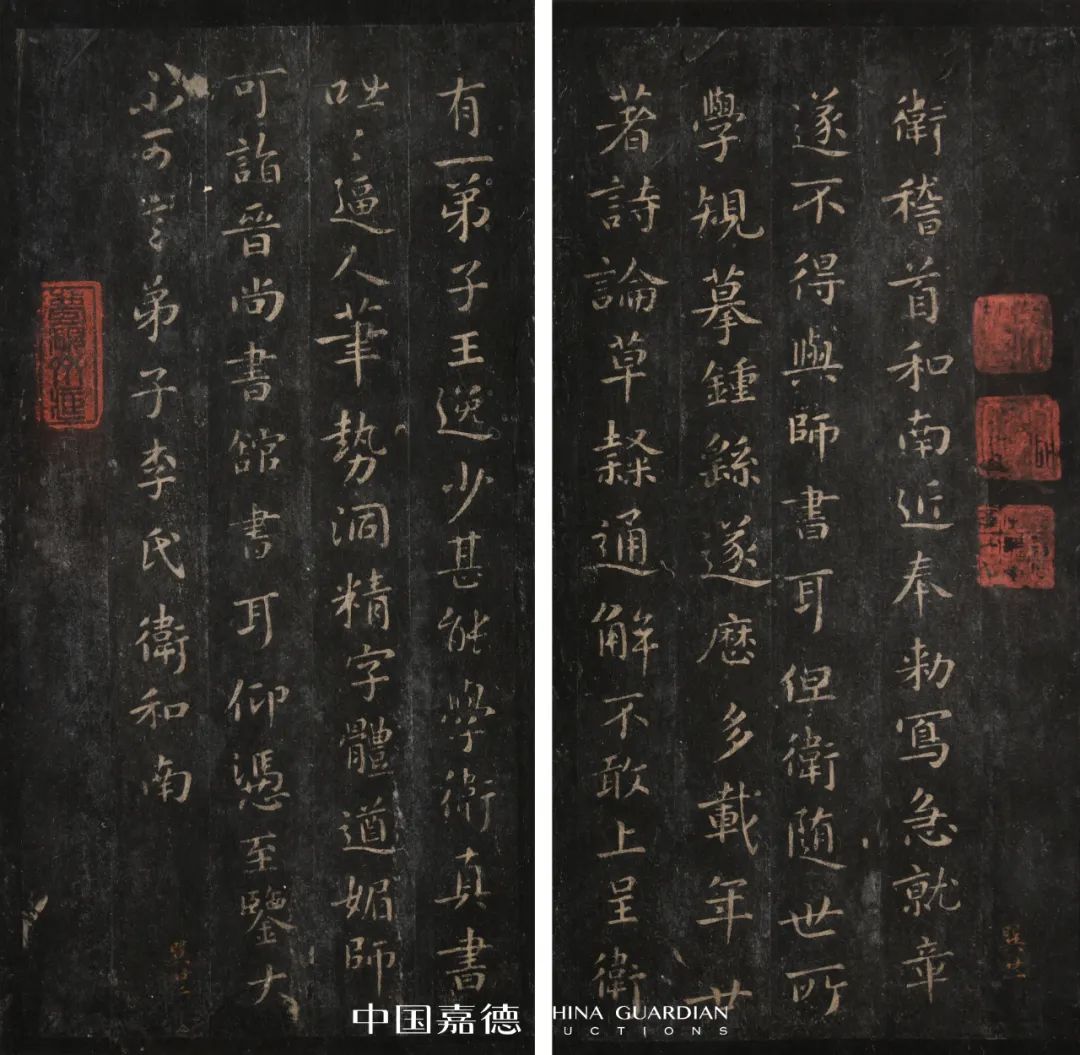 衛稽首和南近奉勅寫急就章
遂不得與師書耳但衛随世所
學規摹鍾繇遂歷多載年廿
著詩論草隸通解不敢上呈衛
有一弟子王逸少甚能學衛真書
咄〻逼人筆勢洞精字體遒媚師
可詣晉尚書舘書耳仰憑至鑒大
不可言弟子李氏衛和南
中国嘉德
HINA GUARDIAN
UCTIONS